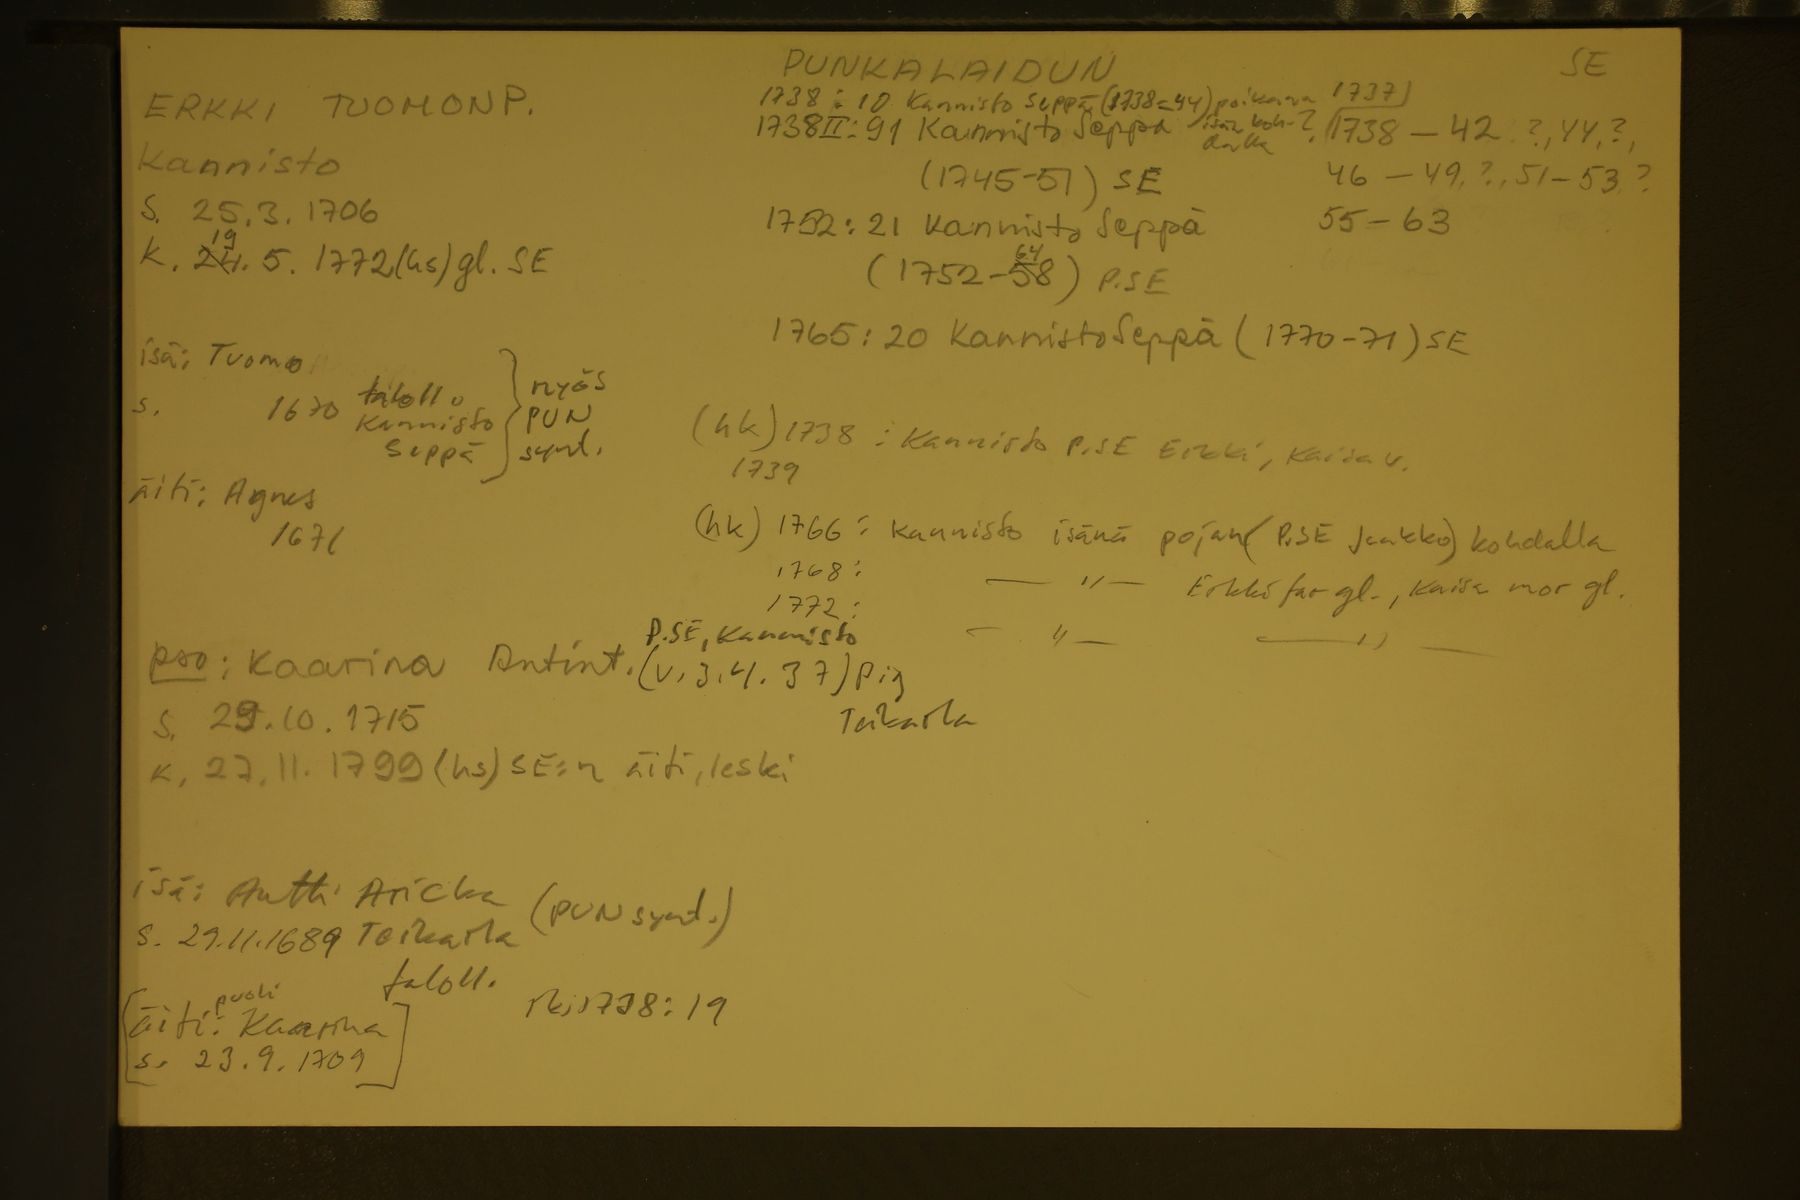 PUNKALAIDUN
SE
ERKKI TUOMONP.
Kannisto
S. 25.3.1706
19
K. 24.5.1772 (hs) gl. SE
isä: Tuomo
s. 1670 taloll.
Kannisto
Seppä
myös
PUN
synt.
äiti: Agnes
1671
1738: 10 Kannisto Seppä (1738-44) poikana
isän koh-
dalla ?
1738II: 91 Kannisto Seppä
(1745-51) SE
1752: 21 Kannisto Seppä
64
(1752-58) P.SE
1765: 20 Kannisto Seppä (1770-71) SE
1737
1738 - 42 ?, 44, ?,
46 - 49, ?, 51-53, ?
55-63
(hk) 1738: Kannisto P.SE Erkki, Kaisa v.
1739
(hk) 1766: Kannisto isänä pojan (P.SE Jaakko) kohdalla
1768: — " — Erkki far gl., Kaisa mor gl.
1772: — " — — " —
P.SE, Kannisto
pso: Kaarina Antint. (v. 3.4.37) pig
Teikarla
S. 29.10.1715
K. 27.11.1799 (hs) SE:n äiti, leski
isä: Antti Aricka (PUN synt.)
s. 29.11.1689 Teikarla
taloll.
puoli
[äiti: Kaarina
s. 23.9.1709]
rk 1738: 19